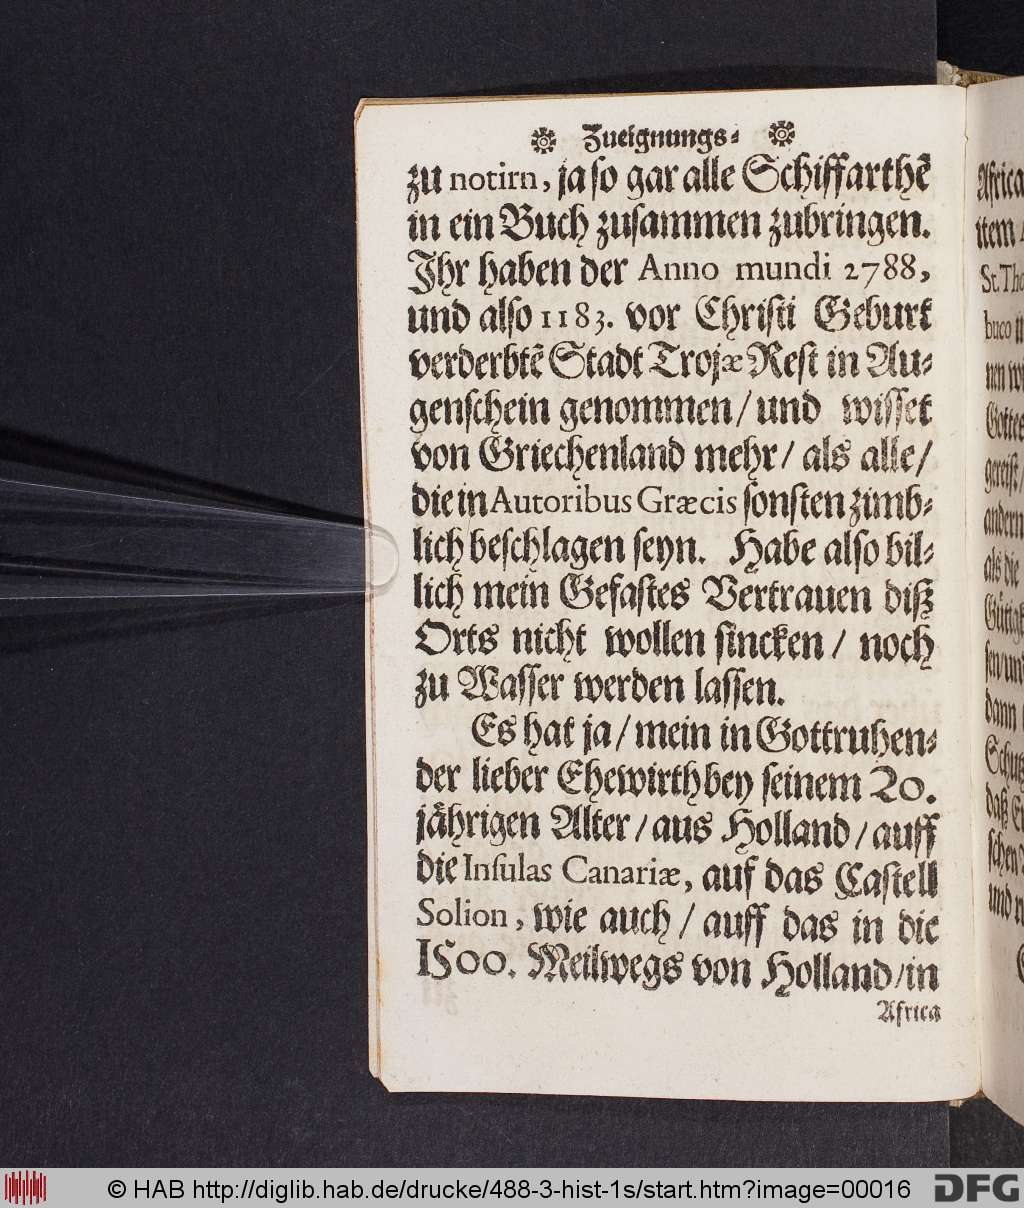 Zueignungs-
zu notirn, ja so gar alle Schiffarthẽ
in ein Buch zusammen zubringen.
Ihr haben der Anno mundi 2788,
und also 1183. vor Christi Geburt
verderbtẽ Stadt Trojæ Rest in Au-
genschein genommen/ und wisset
von Griechenland mehr/ als alle/
die in Autoribus Græcis sonsten zimb-
lich beschlagen seyn. Habe also bil-
lich mein Gefastes Vertrauen diß
Orts nicht wollen sincken/ noch
zu Wasser werden lassen.
Es hat ja/ mein in Gottruhen-
der lieber Ehewirth bey seinem 20.
jährigen Alter/ aus Holland/ auff
die Insulas Canariæ, auf das Castell
Solion, wie auch/ auff das in die
1500. Meilwegs von Holland/ in
Africa
Africa
item
St. The
buco
nen wi
Gottes
gereist/
andern
als die
sen/ und
dann
Schutz
daß
schen
und
© HAB http://diglib.hab.de/drucke/488-3-hist-1s/start.htm?image=00016
DFG